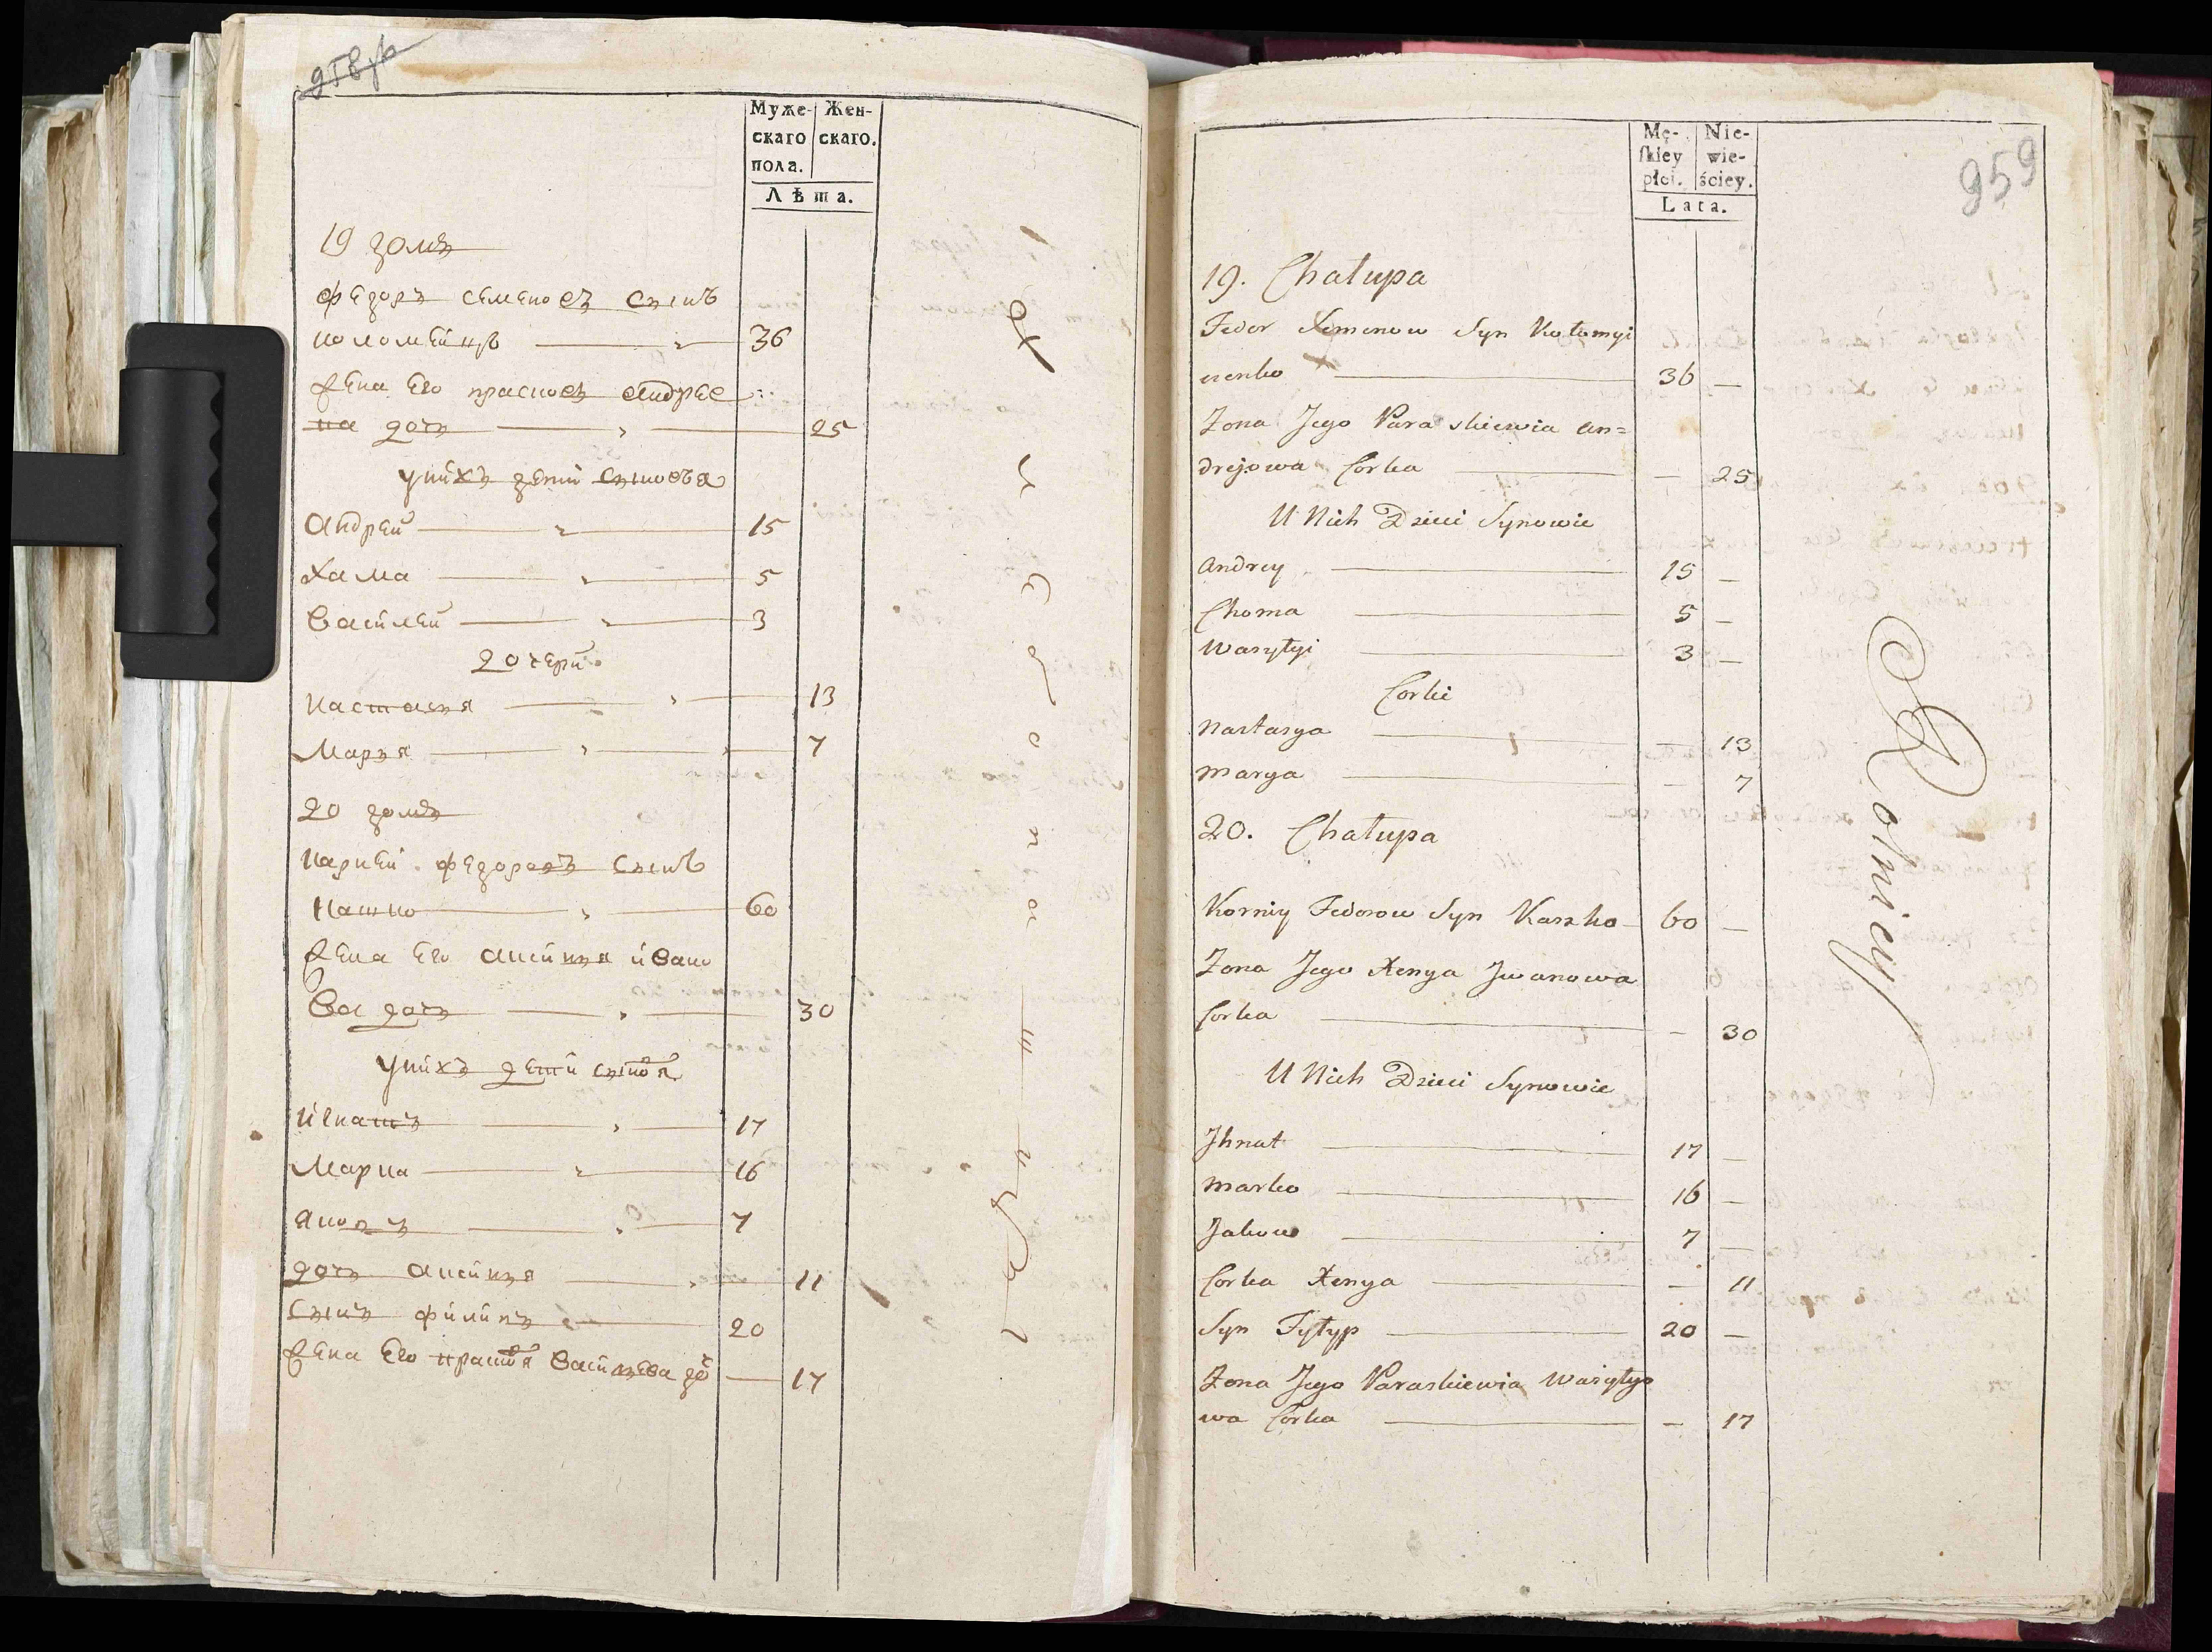 Муже-
скаго
пола.
Жен-
скаго.
Лѣта.
19 домъ
Федоръ Семеновъ сынъ
Коломѣйцъ 36
Жена Его прасковъ андрее
на дочь 25
у нихъ дети сыновья
Андрей 15
Хама 5
Василей 3
дочери
Настасья 13
Марья 7
20 домъ
Карней Федоровъ сынъ
Кашко 60
Жена Его Аксинья ивано
ва дочь 30
у нихъ дети сыновя
Игнатъ 17
Марка 16
Яковъ 7
дочь Аксинья 11
сынъ филипъ 20
Жена Его прасковя Васильева до 17
959
Mę-
ſkiey
płci.
Nie-
wie-
ściey.
Lata.
19. Chałupa
Fedor Semenow Syn Kołomyi
cienko 36 —
Zona Jego Paraskiewia an=
drejowa Corka — 25
U Nich Dzieci Synowie
Andrey 15 —
Choma 5 —
Wasyłyi 3 —
Corki
Nastasya — 13
Marya — 7
20. Chałupa
Korniy Fedorow Syn Kaszko 60 —
Zona Jego Xenya Jwanowa
Corka — 30
U Nich Dzieci Synowie
Jhnat 17 —
Marko 16 —
Jakow 7 —
Corka Xenya — 11
Syn Fyłyp 20 —
Zona Jego Paraskiewia Wasyłyo
wa Corka — 17
Rolnicy